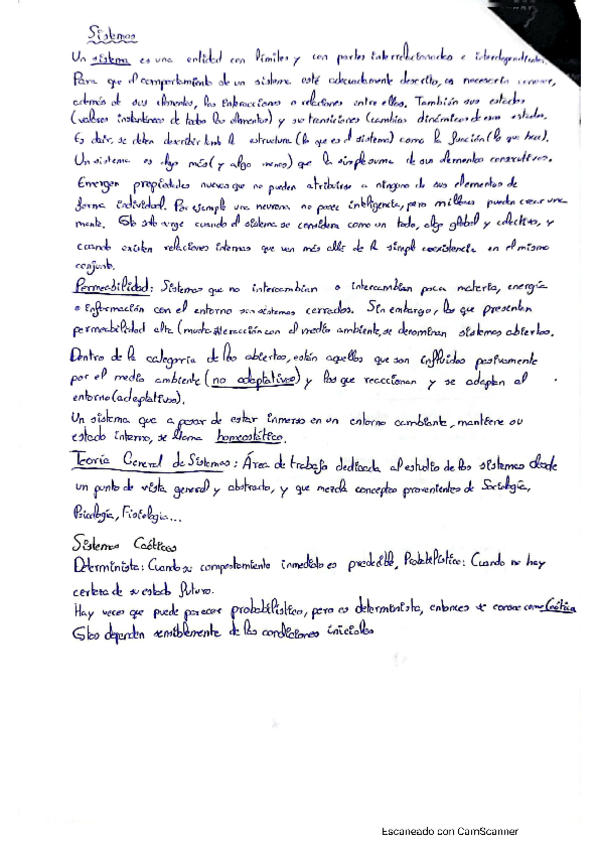 Sistemas
Un sistema es una entidad con límites y con partes interrelacionadas e interdependientes.
Para que el comportamiento de un sistema esté adecuadamente descrito, es necesario conocer,
además de sus elementos, las interacciones o relaciones entre ellos. También sus estados
(valores instantáneos de todos los elementos) y sus transiciones (cambios dinámicos de esos estados.
Es decir, se deben describir tanto la estructura (lo que es el sistema) como la función (lo que hace).
Un sistema es algo más (y algo menos) que la simple suma de sus elementos constitutivos.
Emergen propiedades nuevas que no pueden atribuirse a ninguno de sus elementos de
forma individual. Por ejemplo una neurona no posee inteligencia, pero millones pueden crear una
mente. Esto solo surge cuando el sistema se considera como un todo, algo global y colectivo, y
cuando existen relaciones internas que van más allá de la simple coexistencia en el mismo
conjunto.
Permeabilidad: Sistemas que no intercambian o intercambian poca materia, energía
o información con el entorno son sistemas cerrados. Sin embargo, los que presentan
permeabilidad alta (mucha interacción con el medio ambiente, se denominan sistemas abiertos.
Dentro de la categoría de los abiertos, están aquellos que son influidos pasivamente
por el medio ambiente (no adaptativos) y los que reaccionan y se adaptan al
entorno (adaptativos).
Un sistema que a pesar de estar inmerso en un entorno cambiante, mantiene su
estado interno, se llama homeostático.
Teoría General de Sistemas: Área de trabajo dedicada al estudio de los sistemas desde
un punto de vista general y abstracto, y que mezcla conceptos provenientes de Sociología,
Psicología, Fisiología...
Sistemas Caóticos
Determinista: Cuando su comportamiento inmediato es predecible, Probabilístico: Cuando no hay
certeza de su estado futuro.
Hay veces que puede parecer probabilístico, pero es determinista, entonces se conoce como Caótico
Estos dependen sensiblemente de las condiciones iniciales
Escaneado con CamScanner